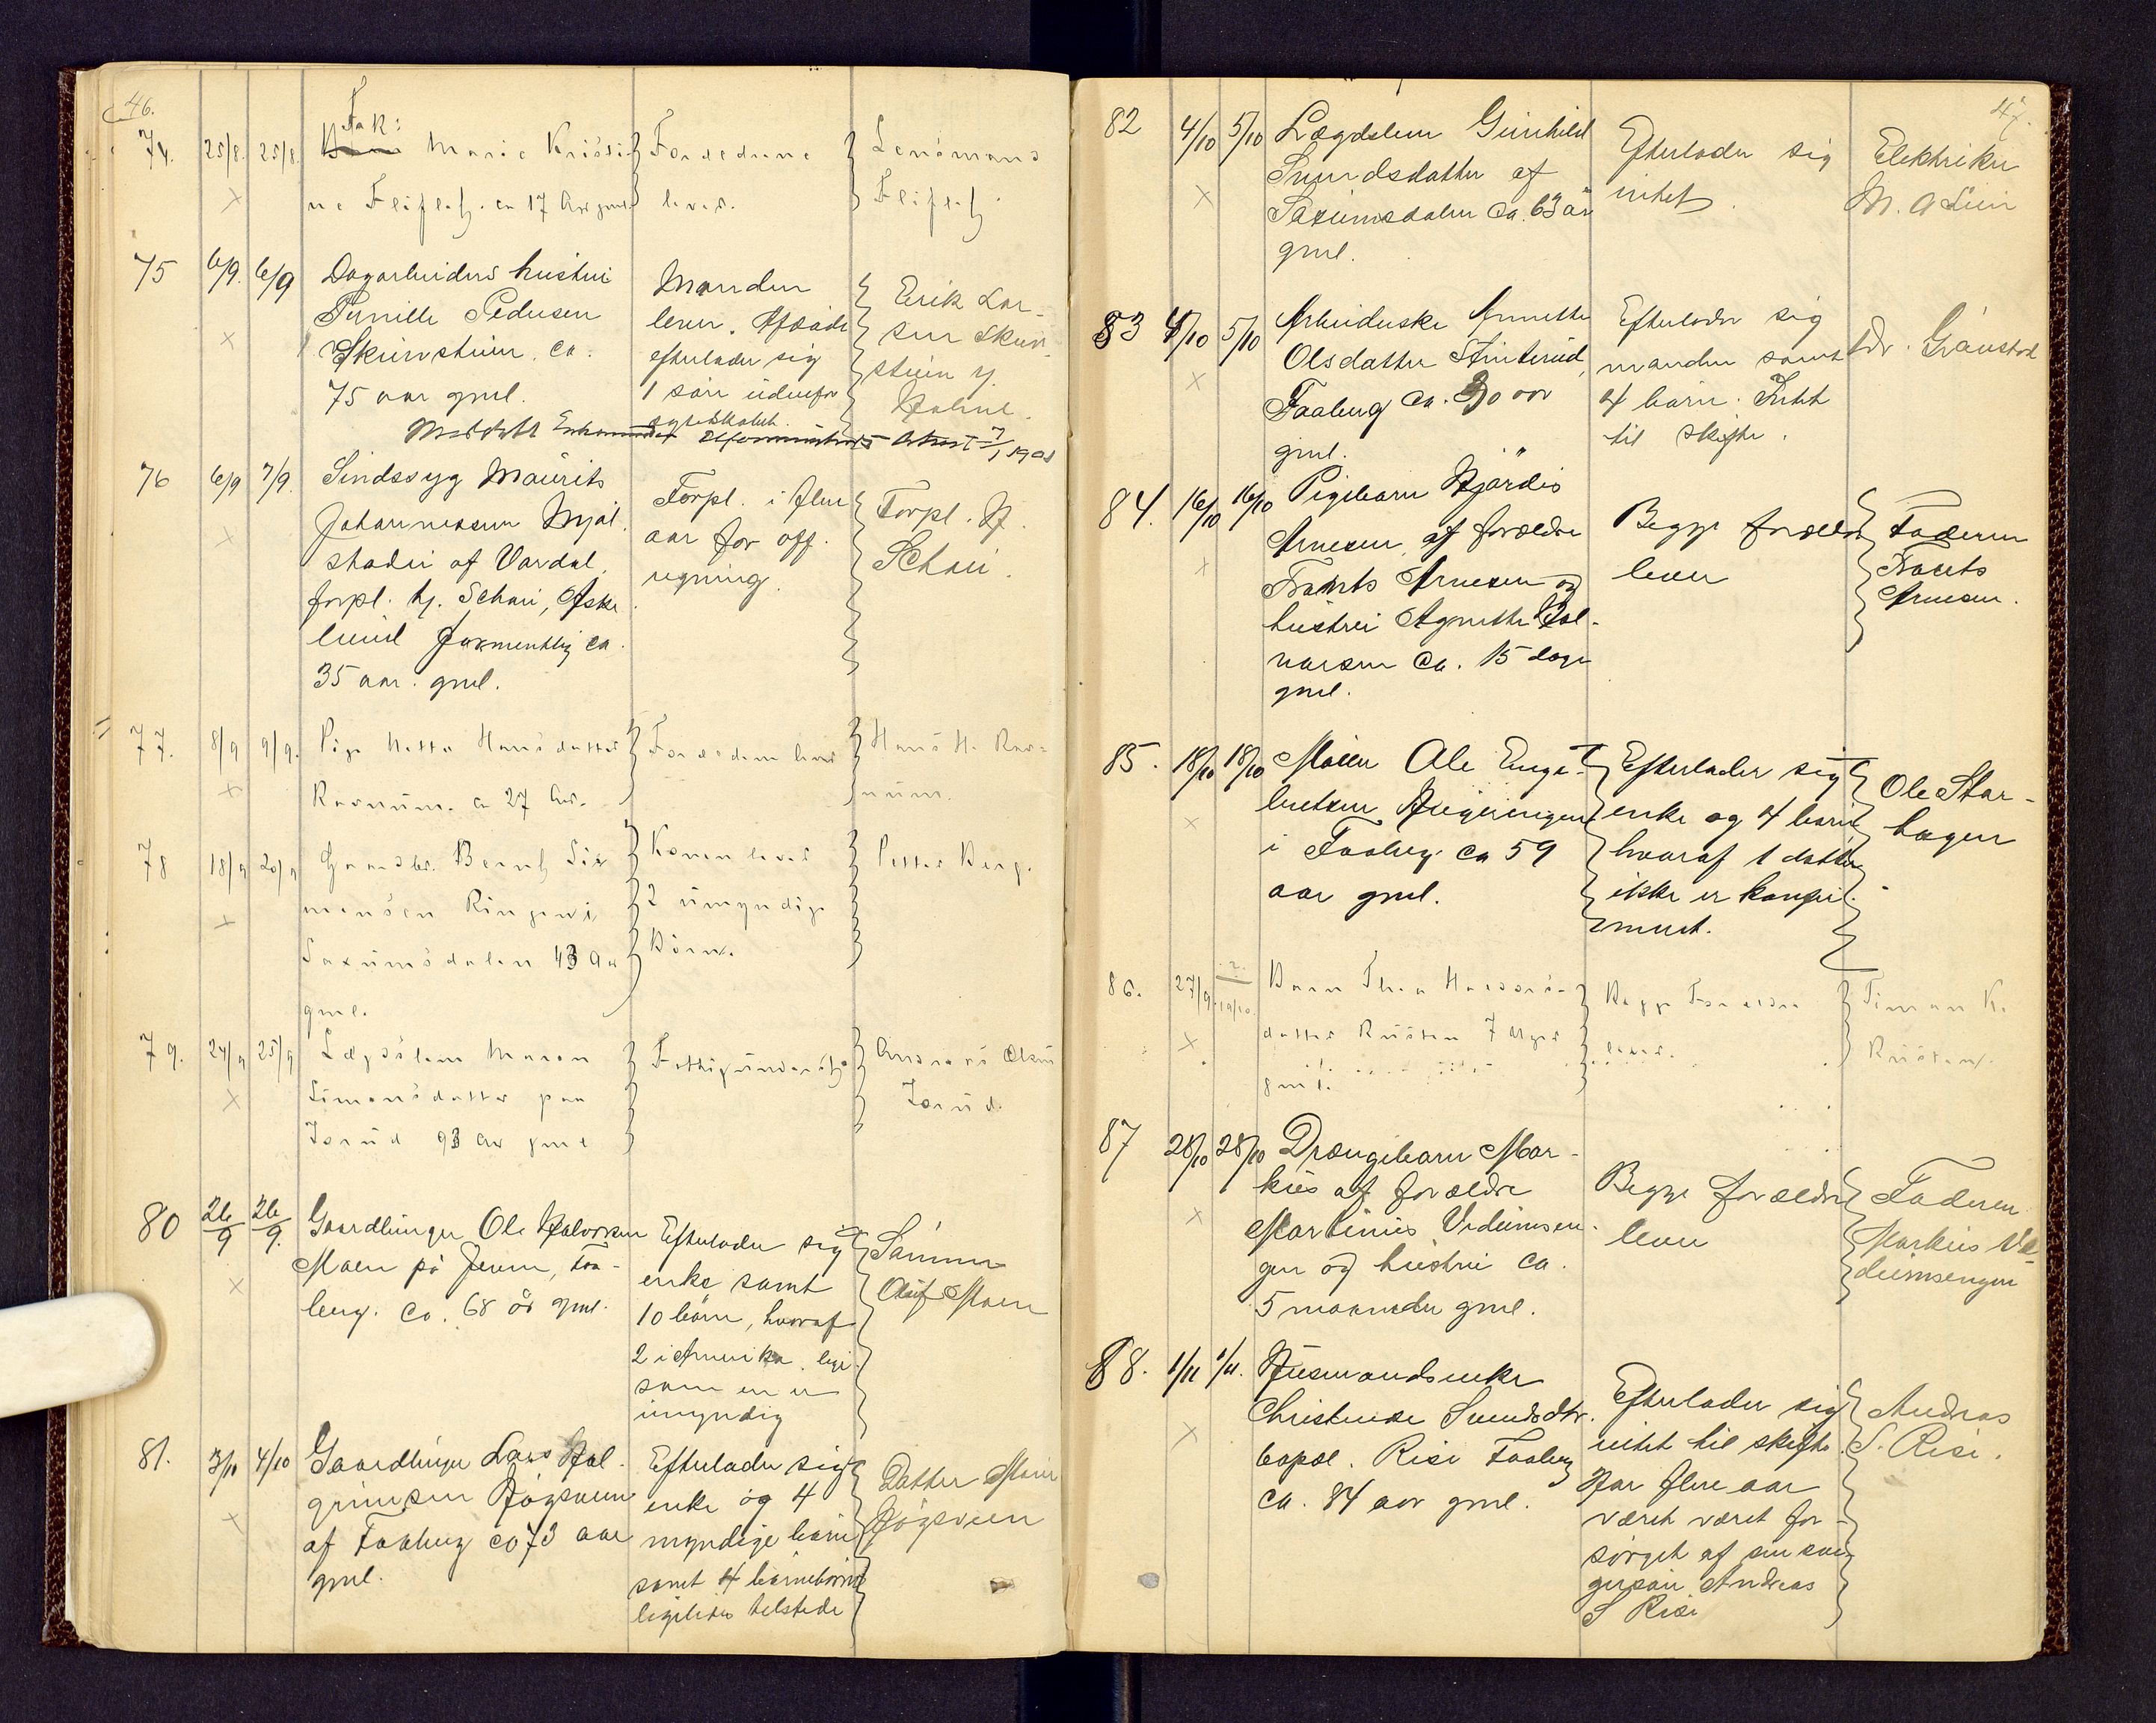 46.
74. 25/8. 25/8. Frk: Marie Kristi- Forældrene Lensmand
ne Fliflet. ca 17 Aar gml. lever. Fliflet.
75 6/9. 6/9 Dagarbeiders hustru
Pernille Pedersen
Skurvstuin. ca.
75 aar gml.
Manden
lever. Afdøde
efterlader sig
1 søn udenfor
egteskabet.
Erik Lar-
sen Skurv-
stuin y.
1901
76 6/9 7/9. Sindssyg Mauritz
Johannessen
af Vardal.
forpl. hj. Schou,
formentlig ca.
35 aar. gml.
Forpl. i flere
aar for off.
regning.
Forpl. H.
Schou.
77. 8/9 9/9. Pige Hansdatter
Rasnum. ca 27 Aar.
Forældrene lever
Hans H. Ras-
num.
78 18/9 20/9 Gaardbr. Bernt Si-
monsen Ringen i
Saxumsdalen 43 Aar
gml.
Konen lever
2 umyndige
Børn.
Petter Berg.
79. 24/9 25/9 Lægdslem Maren
Simensdatter paa
Jorud 93 Aar gml
Fattigunderst.
Jorud.
80 26/9 26/9. Gaardbruger Ole Halvorsen
Moen på Jevne, Faa-
berg. ca. 68 år gml.
Efterlader sig
enke samt
10 børn, hvoraf
2 i Amerika, lige-
som en er
umyndig
Sønnen
Oluf Moen
81. 3/10 4/10 Gaardbruger Lars Hal-
grimsen Høgsveen
af Faaberg ca 73 aar
gml.
Efterlader sig
enke og 4
myndige børn
samt 4 børnebørn
ligeledes tilstede
Datter Marie
Høgsveen
47.
82 4/10 5/10 Lægdslem Gunhild
Simensdatter af
Saxumsdalen ca. 63 år
gml.
Efterlader sig
intet.
Elektriker
M. A. Lien
83 4/10 5/10 Arbeiderske Annette
Olsdatter Stinterud,
Faaberg ca. 30 aar
gml.
Efterlader sig
manden samt
4 børn. Intet
til skifte.
Dr. Grønstad
84. 16/10 16/10 Pigebarn Hjørdis
Arnesen, af forældre
Frants Arnesen og
hustru Agnethe Hal-
vorsen ca. 15 dage
gml.
Begge forældre
lever
Faderen
Frants
Arnesen.
85. 18/10 18/10 Maler Ole Enge-
bretsen
i Faaberg ca 59
aar gml.
Efterlader sig
enke og 4 børn,
hvoraf 1 datter
ikke er konfir-
meret.
Ole Stor-
hagen
86. 27/9 19/10. Barn Thea
datter Rusten 7 Uger
gml.
Begge Forældre
lever.
Simen K.
Rusten.
87 28/10 28/10 Drængebarn Mar-
kus af forældre
Martinius Vedumsen-
gen og hustru ca.
5 maaneder gml.
Begge forældre
lever
Faderen
Markus Ve-
dumsengen
88. 1/11 1/11. Husmandsenke
Christense Svendsdtr.
bopæl. Rise Faaberg
ca. 84 aar gml.
Efterlader sig
intet til skifte.
Har flere aar
været været for-
sørget af sin svi-
gersøn Andreas
S Rise
Andreas
S. Rise.